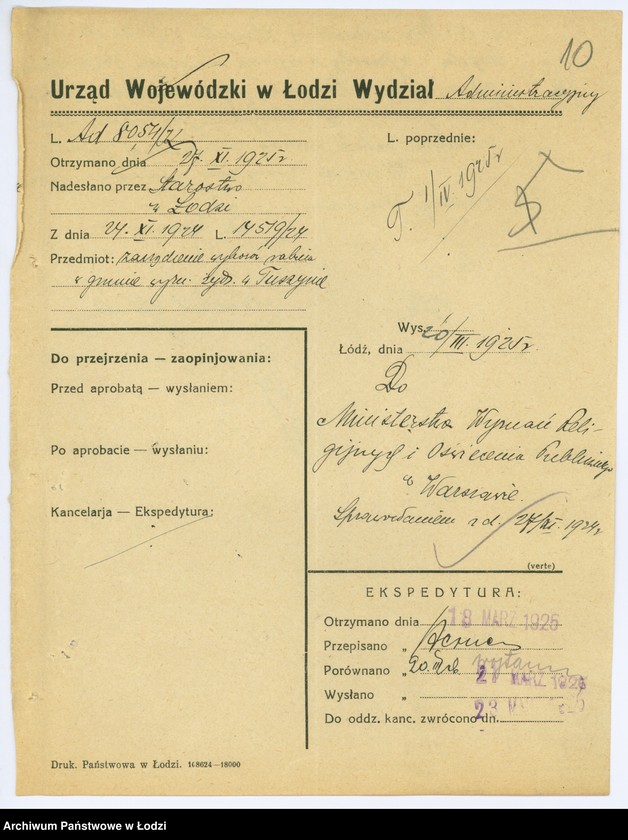 10
Urząd Wojewódzki w Łodzi Wydział Administracyjny
L. Ad 8054/21
Otrzymano dnia 27. XI. 1925 r
Nadesłano przez Starostwo
w Łodzi
Z dnia 24. XI. 1924 L. 14519/24
Przedmiot: zarządzenie wyboru rabina
w gminie wyzn. żyd. w Tuszynie
L. poprzednie:
T. 1/IV 1925 r
Wys. 20/III. 1925 r.
Łódź, dnia
Do
Ministerstwa Wyznań Reli-
gijnych i Oświecenia Publicznego
w Warszawie.
Sprawozdaniem z d. 27/XI. 1924 r
(verte)
Do przejrzenia — zaopinjowania:
Przed aprobatą — wysłaniem:
Po aprobacie — wysłaniu:
Kancelarja — Ekspedytura:
EKSPEDYTURA:
Otrzymano dnia 18 MARZ 1925
Przepisano „
Porównano „ 20.
21 MARZ 1925
Wysłano „
23
Do oddz. kanc. zwrócono dn.
Druk. Państwowa w Łodzi. 168624—18000
Archiwum Państwowe w Łodzi